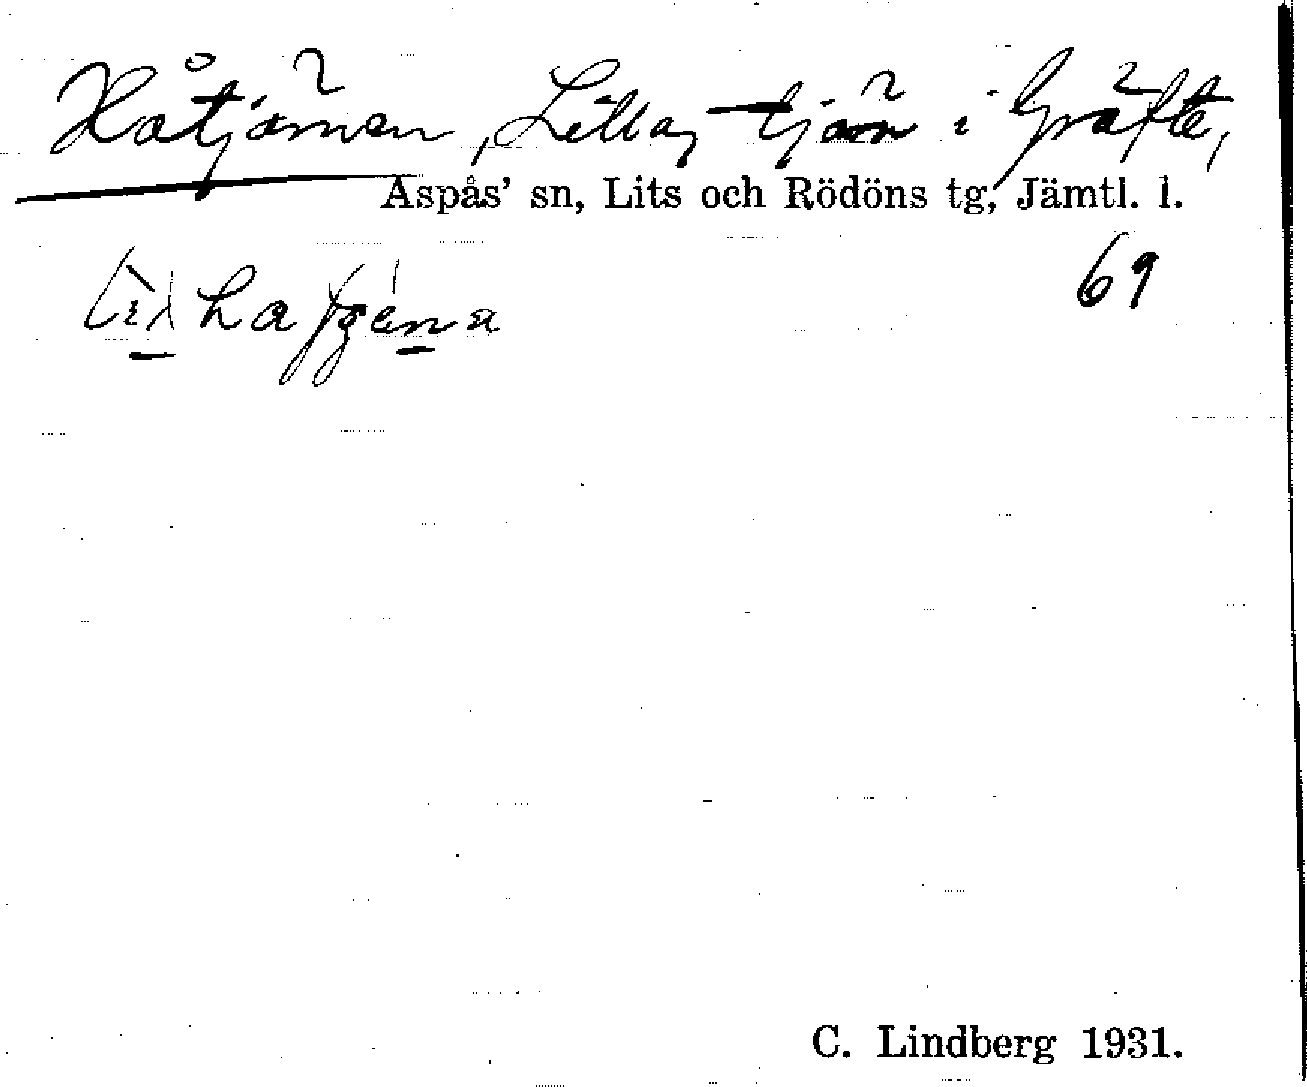 Håtjärnen, Lilla, tjärn i Gräfte,
Aspås' sn, Lits och Rödöns tg, Jämtl. l.
69
C. Lindberg 1931.